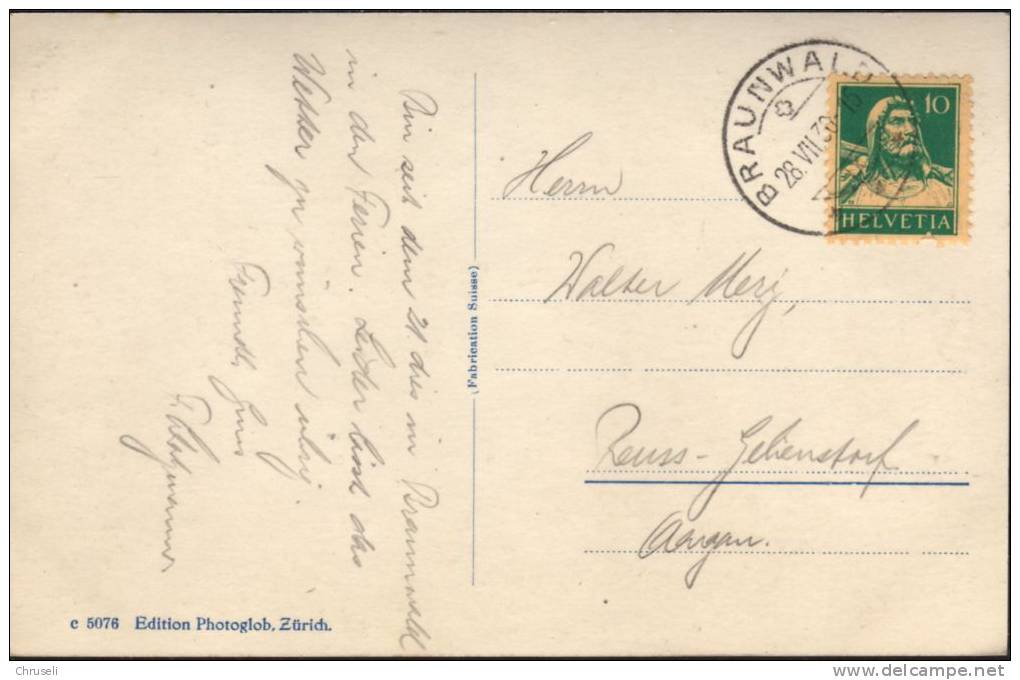 Bin seit dem 21. dies in Braunwald
in den Ferien. Leider lässt das
Wetter zu wünschen übrig.
Freundl. Gruss
(Fabrication Suisse)
BRAUNWALD
28.VII.30
10
HELVETIA
Herrn
Walter Merz,
Reuss-Gebenstorf
Aargau.
c 5076 Edition Photoglob, Zürich.
Chruseli
delcampe.net